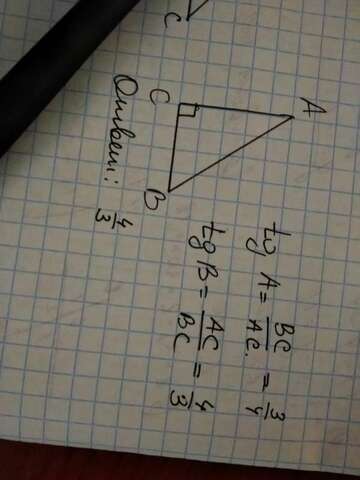 A
C
B
tg A = BC/AC. = 3/4
tg B = AC/BC = 4/3
Ответ: 4/3
C